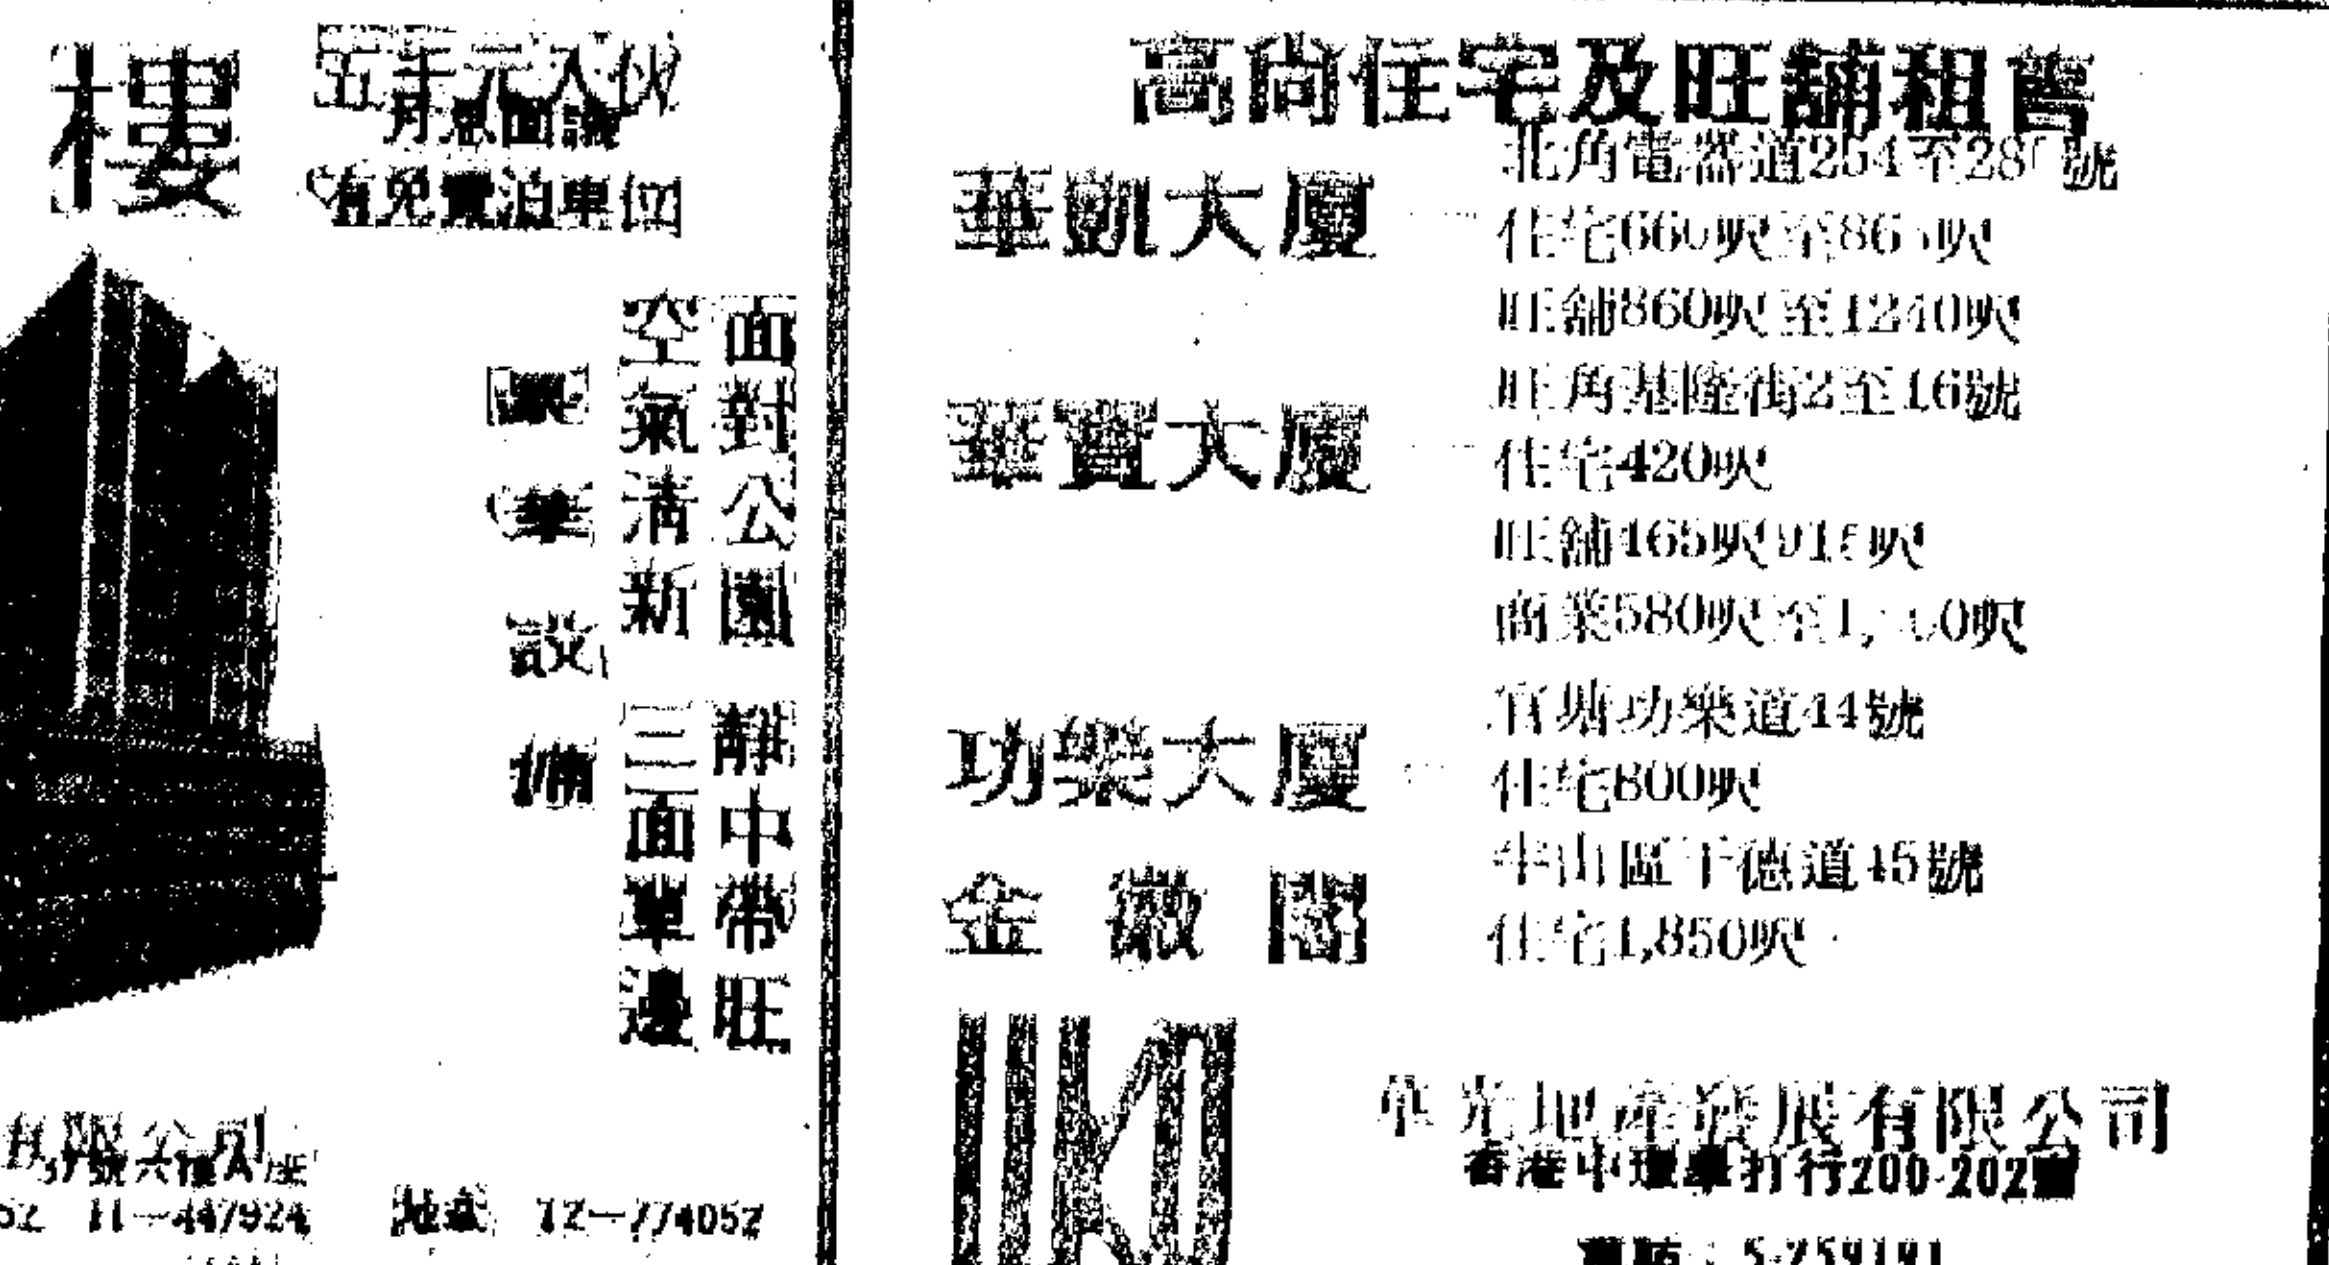 樓
五千元入伙
月息面議
有免費泊車位
面對公園
空氣清新
靜中帶旺
三面單邊
豪華設備
有限公司
37號六樓A座
52 H—447924 地盤 12—774052
高尚住宅及旺舖租售
華凱大廈
北角電器道254至28號
住宅660呎至865呎
旺舖860呎至1240呎
華寶大廈
旺角基隆街2至16號
住宅420呎
旺舖465呎915呎
商業580呎至1,0呎
功樂大廈
官塘功樂道44號
住宅800呎
金徽閣
半山區干德道45號
住宅1,850呎
華光地產發展有限公司
香港中環畢打行200-202室
電話：5-259191